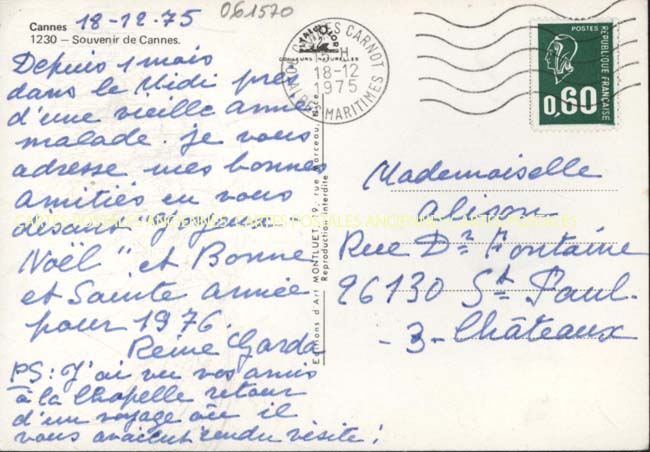 Cannes 18-12-75 061570
1230 – Souvenir de Cannes.
Depuis 1 mois
dans le Midi près
d'une vieille amie
malade. je vous
adresse mes bonnes
amitiés en vous
désirant "Joyeux
Noël" et Bonne
et Sainte année
pour 1976.
Reine Garda
PS: J'ai vu vos amis
à la Chapelle retour
d'un voyage où il
vous avaient rendu visite!
Editions d'Art MONTLUET - 9, rue Marceau, Nice
Reproduction interdite
CANNES CARNOT
H
18-12
1975
ALPES MARITIMES
POSTES
RÉPUBLIQUE FRANÇAISE
0,60
Mademoiselle
Alison
Rue Dr Fontaine
26130 St Paul.
-3- Châteaux
CARTES POSTALES ANCIENNES CARTES POSTALES ANCIENNES CARTES POSTALES